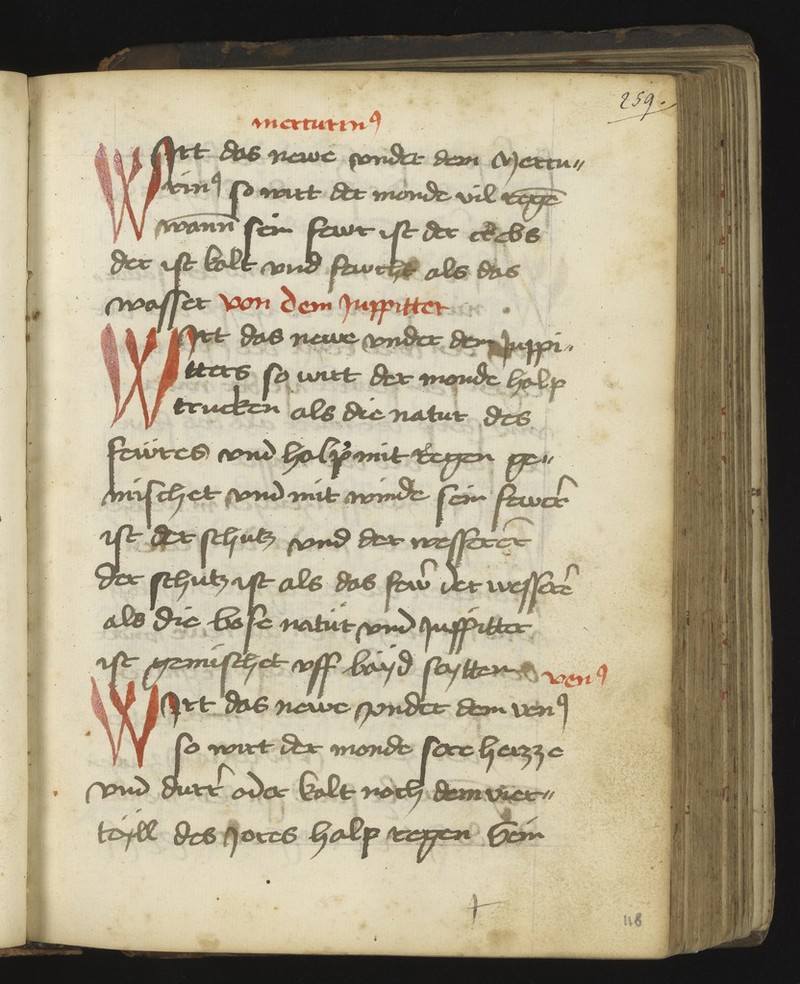 259.
mercurinꝰ
Wirt das newe vnder dem Mercu〃
rinꝰ so wirt der monde vil regē
wann̄ sein fewr ist der crebs
der ist kalt vnd fewcht als das
wasser von dem Juppitter
Wirt das newe vnder dem Juppi〃
tters so wirt der monde halp
trucken als die natur des
fewres vnd halp mit regen ge〃
mischet vnd mit winde sein fewer
ist der schutz vnd der wesserer
der schutz ist als das fewr der wesserer
als die bose natur vnd Juppitter
ist gemischet vff bayd seytten
venꝰ
Wirt das newe vnder dem venꝰ
so wirt der monde sere heizze
vnd durr oder kalt noch dem vier〃
teyll des Jores halp regen
118